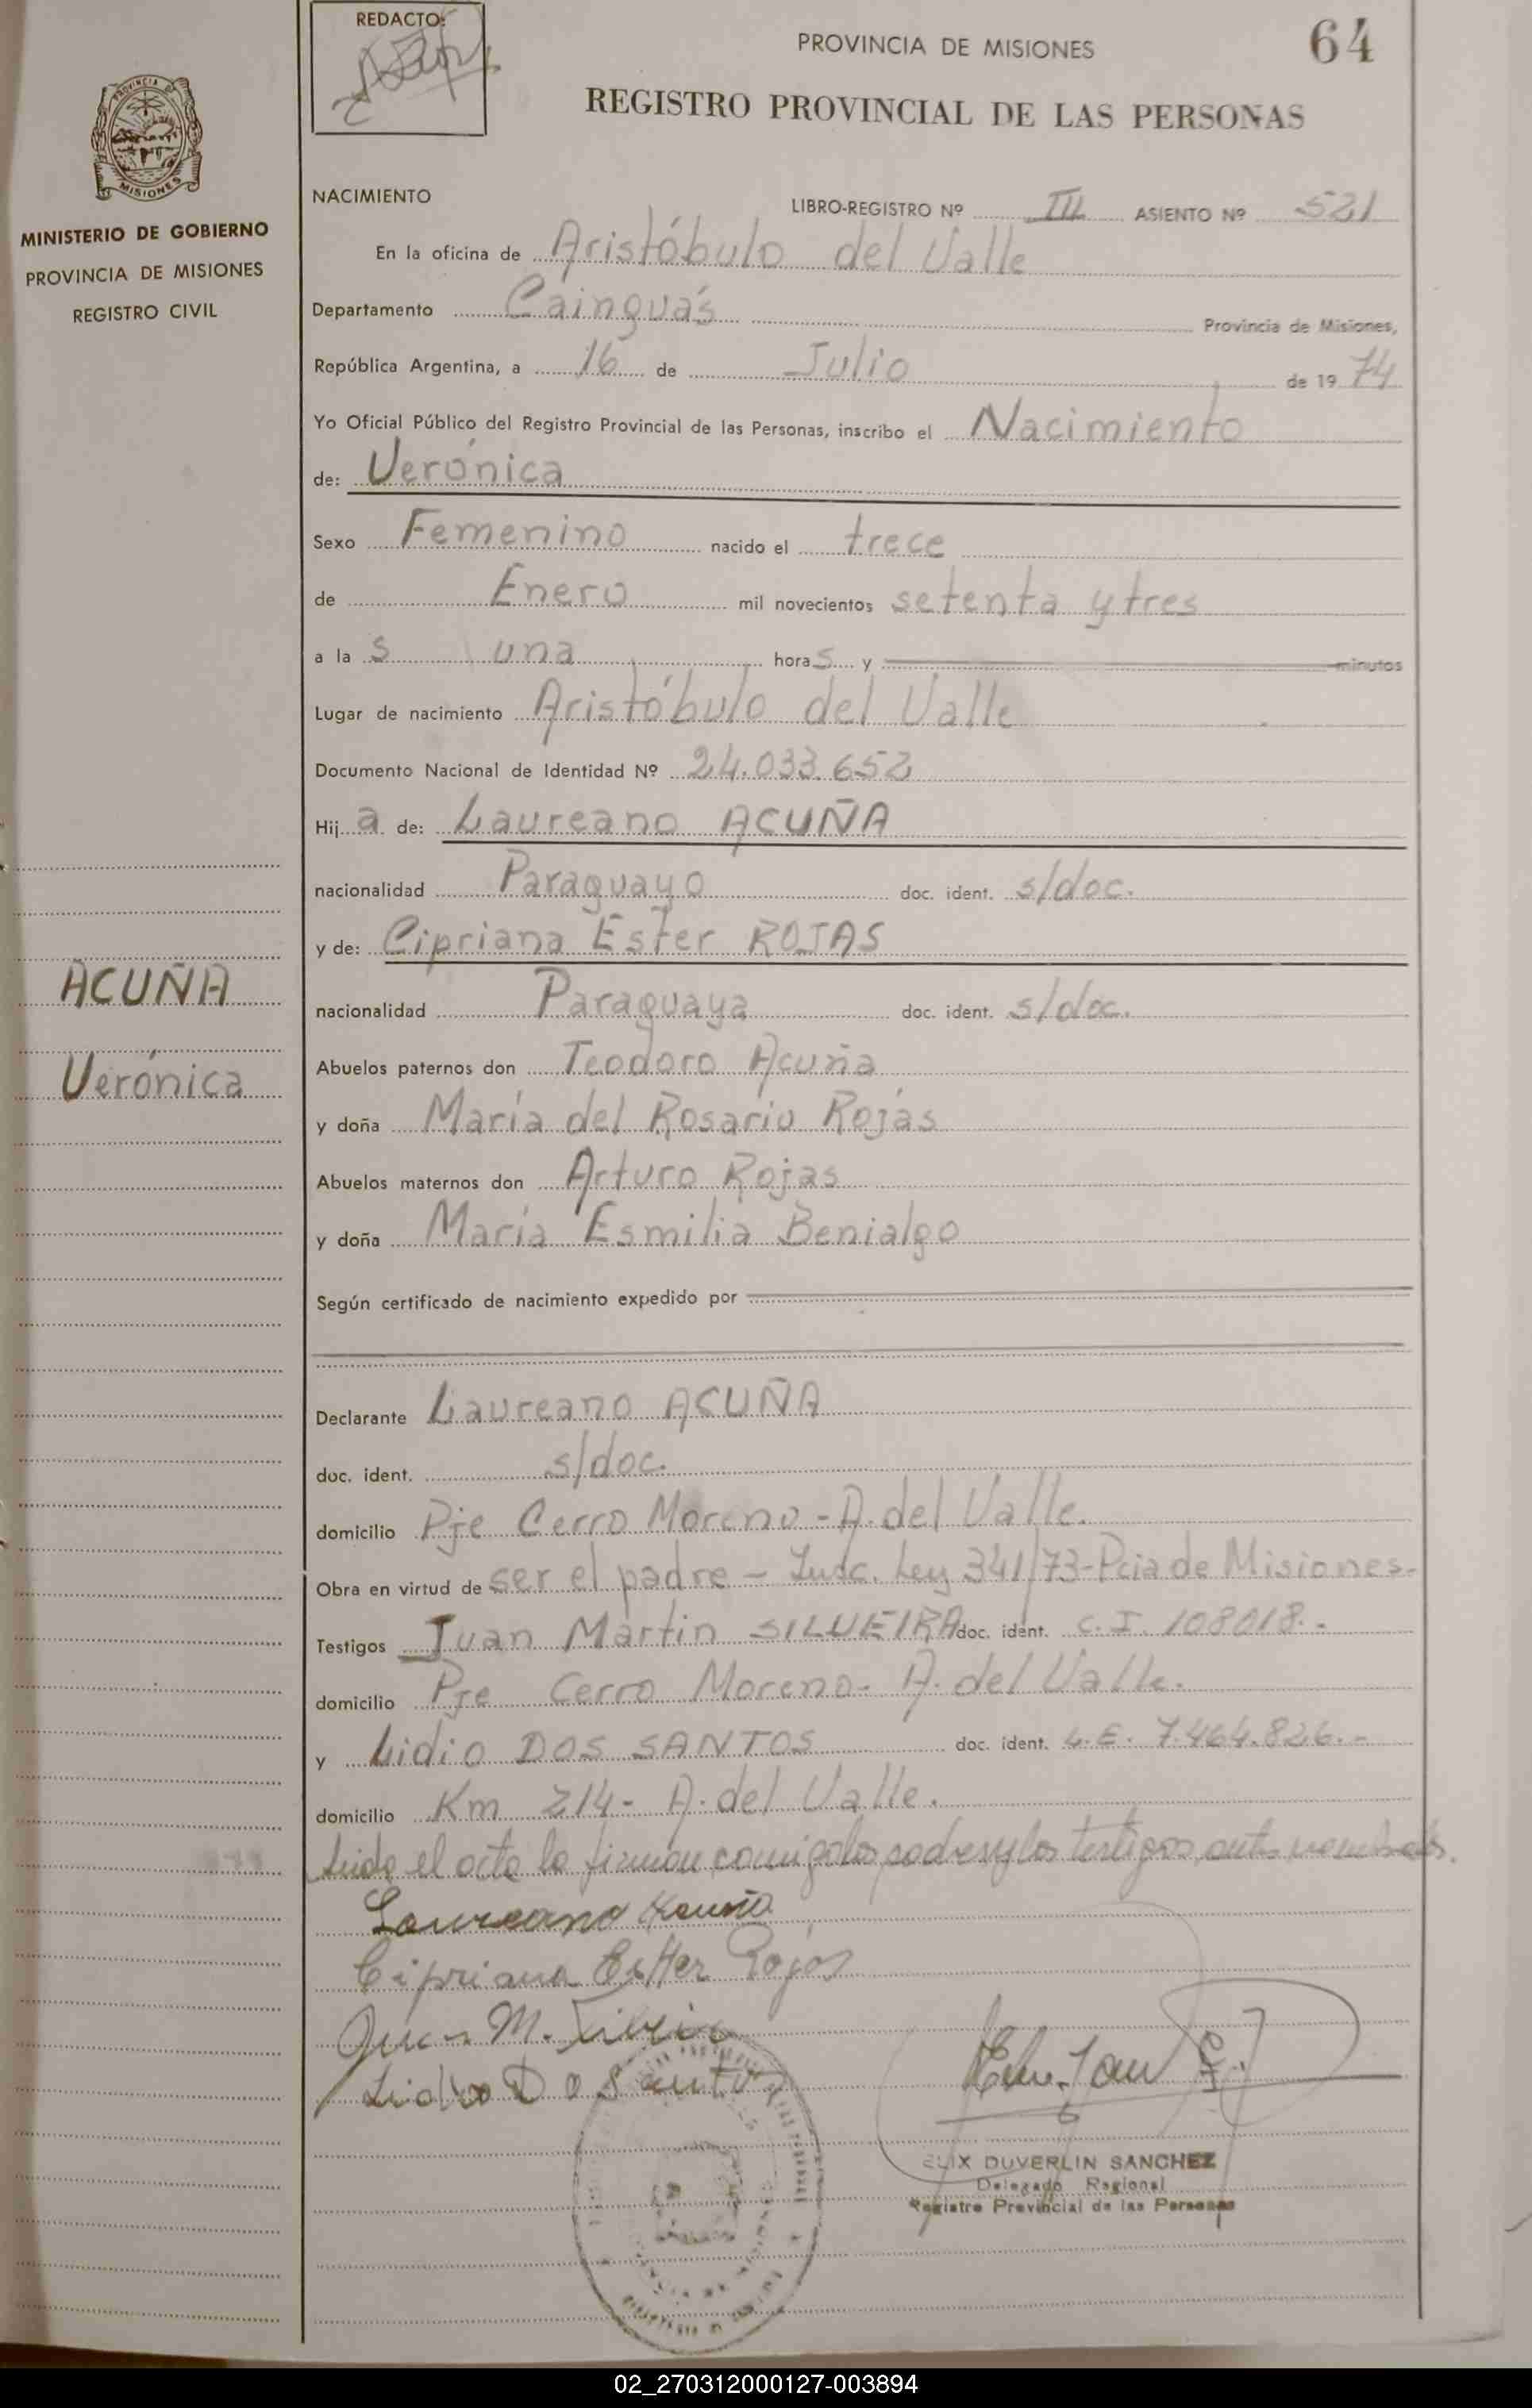 REDACTO:
PROVINCIA DE MISIONES
64
REGISTRO PROVINCIAL DE LAS PERSONAS
PROVINCIA DE
MISIONES
MINISTERIO DE GOBIERNO
PROVINCIA DE MISIONES
REGISTRO CIVIL
NACIMIENTO
LIBRO-REGISTRO Nº III ASIENTO Nº 521
En la oficina de Aristóbulo del Valle
Departamento Cainguás Provincia de Misiones,
República Argentina, a 16 de Julio de 1974
Yo Oficial Público del Registro Provincial de las Personas, inscribo el Nacimiento
de: Verónica
Sexo Femenino nacido el trece
de Enero mil novecientos setenta y tres
a las una horas y minutos
Lugar de nacimiento Aristóbulo del Valle
Documento Nacional de Identidad Nº 24.033.652
Hija de: Laureano ACUÑA
nacionalidad Paraguayo doc. ident. s/doc.
y de: Cipriana Ester ROJAS
nacionalidad Paraguaya doc. ident. s/doc.
ACUÑA
Verónica
Abuelos paternos don Teodoro Acuña
y doña María del Rosario Rojas
Abuelos maternos don Arturo Rojas
y doña María Esmilia Benialgo
Según certificado de nacimiento expedido por
Declarante Laureano ACUÑA
doc. ident. s/doc.
domicilio Pje Cerro Moreno - A. del Valle.
Obra en virtud de ser el padre - Insc. Ley 341/73-Pcia de Misiones-
Testigos Juan Martin SILVEIRA doc. ident. C.I. 108018.-
domicilio Pje Cerro Moreno- A. del Valle.
y Lidio DOS SANTOS doc. ident. L.E. 7.464.826.-
domicilio Km 214- A. del Valle.
Leído el acta la firman conmigo los padres y los testigos antes nombrados.
Laureano Acuña
Cipriana Ester Rojas
Juan M. Silveira
Lidio Do Santo
ELIX DUVERLIN SANCHEZ
Delegado Regional
Registro Provincial de las Personas
02_270312000127-003894